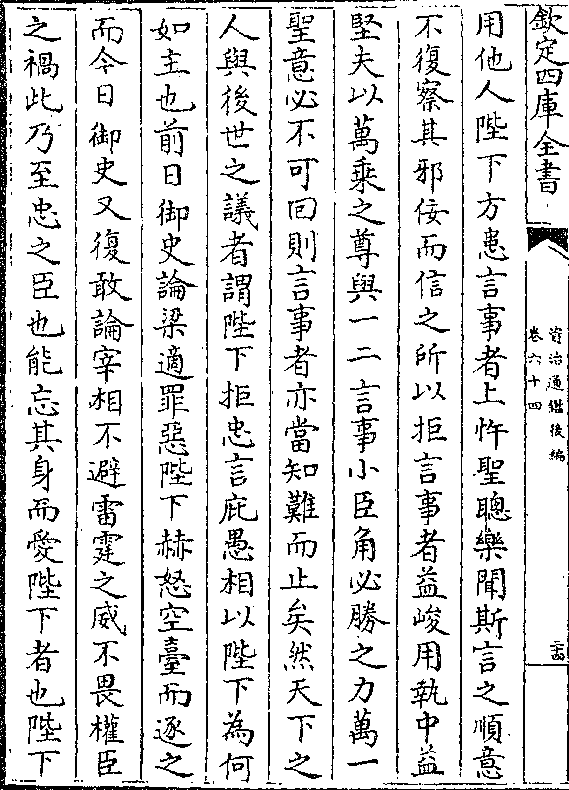 欽定四庫全書
資治通鑑後編
卷六十四
用他人陛下方患言事者上忤聖聰樂聞斯言之順意
不復察其邪佞而信之所以拒言事者益峻用執中益
堅夫以萬乘之尊與一二言事小臣角必勝之力萬一
聖意必不可回則言事者亦當知難而止矣然天下之
人與後世之議者謂陛下拒忠言庇愚相以陛下為何
如主也前日御史論梁適罪惡陛下赫怒空臺而逐之
而今日御史又復敢論宰相不避雷霆之威不畏權臣
之禍此乃至忠之臣也能忘其身而愛陛下者也陛下